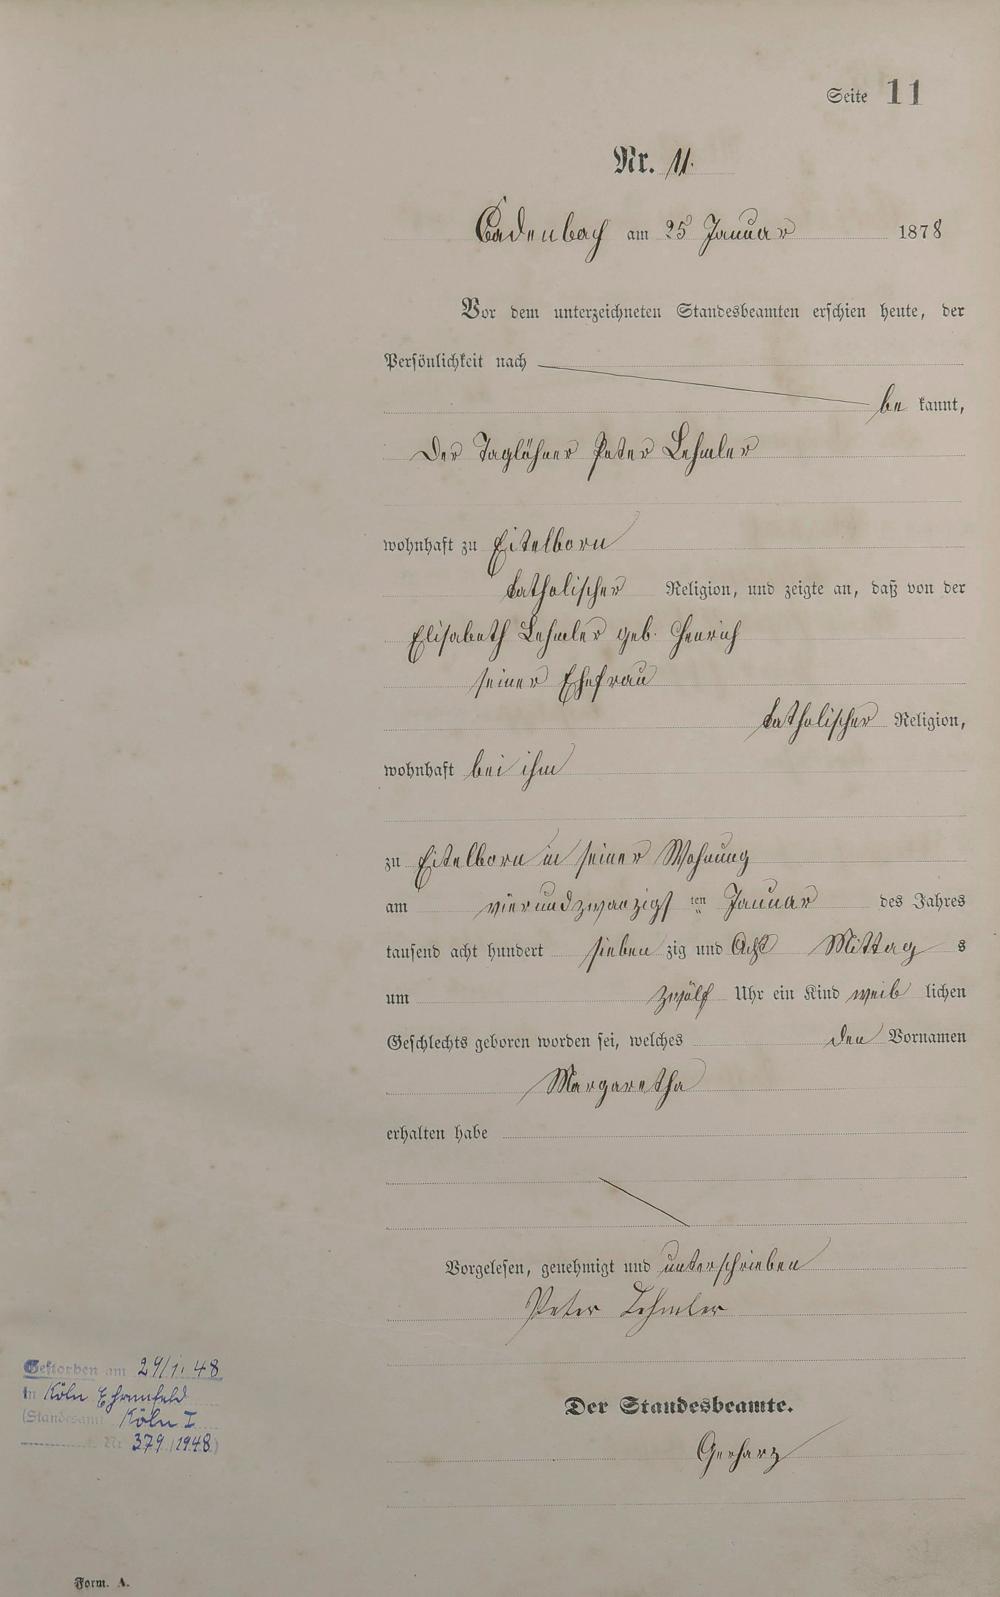 Seite 11
Nr. 11.
Cadenbach am 25 Januar 1878
Vor dem unterzeichneten Standesbeamten erschien heute, der
Persönlichkeit nach
be kannt,
Der Taglöhner Peter Lehmler
wohnhaft zu Eitelborn
katholischer Religion, und zeigte an, daß von der
Elisabeth Lehmler geb. Henrich
seiner Ehefrau
katholischer Religion,
wohnhaft bei ihm
zu Eitelborn in seiner Wohnung
am vierundzwanzigst ten Januar des Jahres
tausend acht hundert sieben zig und Acht Mittag s
um zwölf Uhr ein Kind weib lichen
Geschlechts geboren worden sei, welches den Vornamen
Margaretha
erhalten habe
Vorgelesen, genehmigt und unterschrieben
Peter Lehmler
Der Standesbeamte.
Gerharz
Gestorben am 29/1. 48
in Köln Ehrenfeld
(Standesamt Köln I
Nr 379/1948)
Form. A.